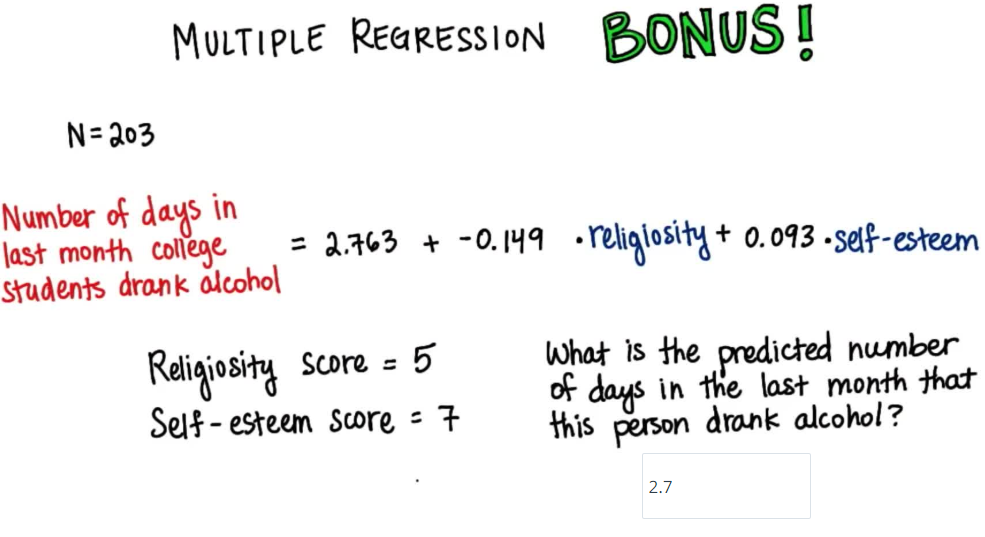 MULTIPLE REGRESSION BONUS!
N=203
Number of days in
last month college
students drank alcohol
= 2.763 + -0.149 · religiosity + 0.093 · self-esteem
Religiosity score = 5
Self-esteem score = 7
What is the predicted number
of days in the last month that
this person drank alcohol?
2.7